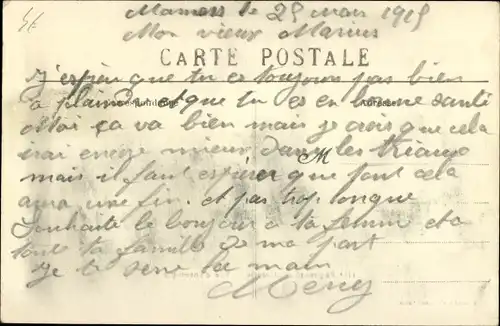 Mamers le 25 mars 1915
Mon vieux Marius
CARTE POSTALE
J'espère que tu es toujours pas bien
a plaindre et que tu es en bonne santé
Moi ça va bien mais je crois que cela
irai encore mieux dans les
mais il faut espérer que tout cela
aura une fin. et pas trop longue
Souhaite le bonjour a ta femme et a
toute ta famille de ma part
Je te serre la main